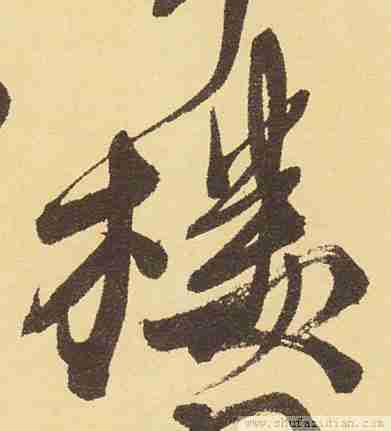 樓
www.shufazidian.com